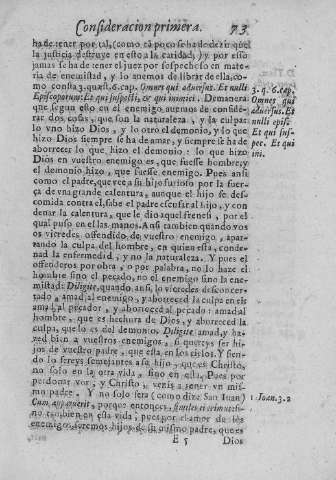 Consideracion primera. 73
ha de tener por tal, (como tãpoco se ha de dezir q̃ el
la justicia destruye en esto a la caridad,) y por esso
jamas se ha de tener el juez por sospechoso en mate
ria de enemistad, y lo anemos de librar de ella, co
mo consta 3. quæst. 6. cap. Omnes qui aduersus. Et nulli
Episcoporum: Et qui suspecti, & qui inimici. De manera
que segun esto en el enemigo auemos de conside-
rar dos cosas, que son la naturaleza, y la culpa:
lo vno hizo Dios, y lo otro el demonio, y lo que
hizo Dios siempre se ha de amar, y siempre se ha de
aborrecer lo que hizo el demonio: lo que hizo
Dios en vuestro enemigo es, que fuesse hombre, y
el demonio hizo, que fuesse enemigo. Pues ansi
como el padre, que vee a su hijo furioso por la fuer-
ça de vna grande calentura, aunque el hijo se des-
comida contra el, sabe el padre escusar al hijo, y con
denar la calentura, que le dio aquel frenesi, por el
qual puso en el las manos. Ansi tambien quando vos
os vieredes offendido de vuestro enemigo, apar-
tando la culpa del hombre, en quien esta, conde-
nad la enfermedad, y no la naturaleza. Y pues el
offenderos por obra, o por palabra, no lo haze el
hombre sino el pecado, no el enemigo sino la ene-
mistad: Diligite, quando ansi lo vieredes desconcer
tado, amad al enemigo, y aborreced la culpa en el:
amad al pecador, y aborreced al pecado: amad al
hombre, que es hechura de Dios, y aborreced la
culpa, que lo es del demonio. Diligite, amad, y ha-
zed bien a vuestros enemigos, si quereys ser hi-
jos de vuestro padre, que esta en los cielos. Y sien-
do lo sereys semejantes a su hijo, que es Christo,
no solo en la otra vida, sino en esta. Pues por
perdonar vos, y Christo, venis a tener vn mis-
mo padre. Y no solo sera (como dize San Iuan)
Cum apparuerit, porque entonces, similes ei erimus: si-
no tambien en esta vida, pues por amar a los
enemigos, seremos hijos de su mismo padre, que es
E 5 Dios
3. q. 6. cap.
Omnes qui
aduersus. Et
nulli episc.
Et qui sus-
pec. Et qui
ini.
1. Ioan. 3. 2